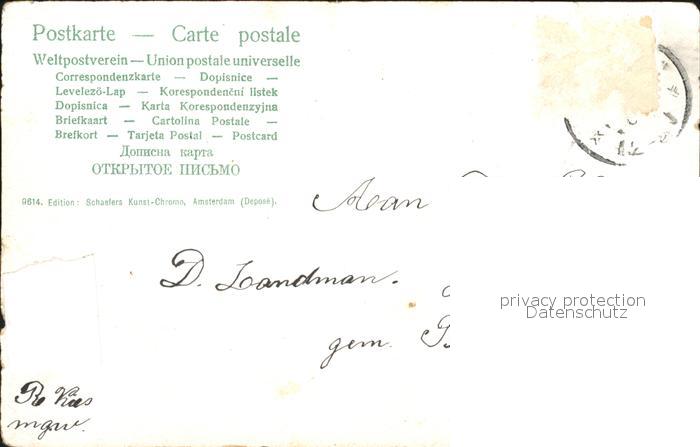 Postkarte — Carte postale
Weltpostverein — Union postale universelle
Correspondenzkarte — Dopisnice —
Levelező-Lap — Korespondenční listek
Dopisnica — Karta Korespondenzyjna
Briefkaart — Cartolina Postale —
Brefkort — Tarjeta Postal — Postcard
Дописна карта
ОТКРЫТОЕ ПИСЬМО
9614. Edition: Schaefers Kunst-Chromo, Amsterdam (Deposé).
Aan
D. Landman.
privacy protection
Datenschutz
gem.